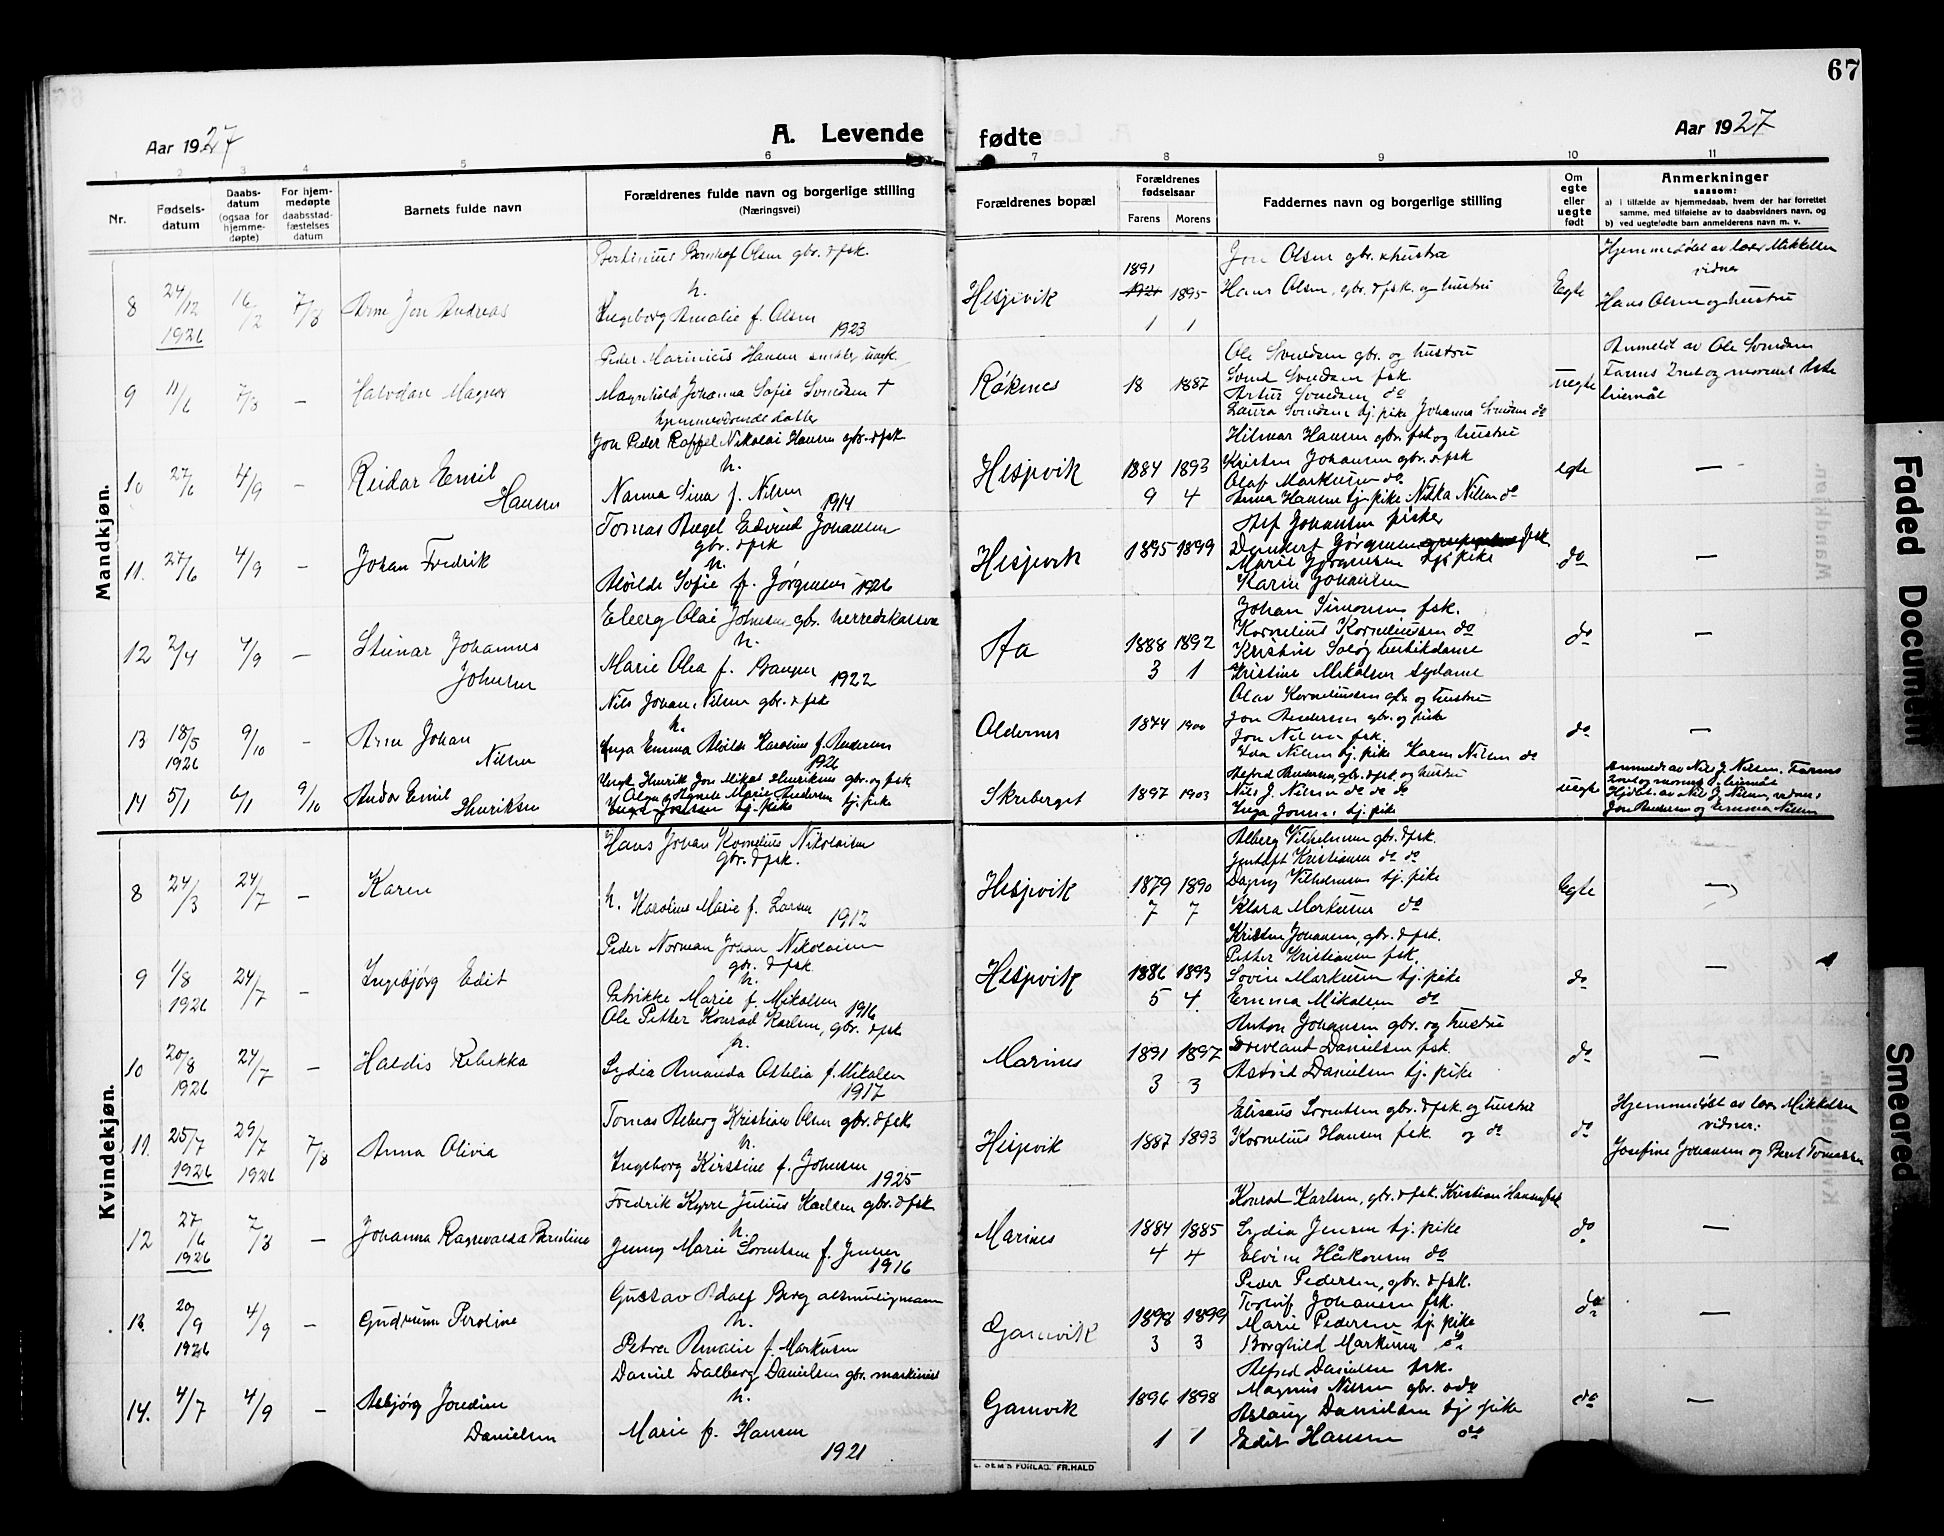 67
Aar 1927
A. Levende
fødte
Aar 1927
1 2 3 4 5 6 7 8 9 10 11
Nr.
Fødsels-
datum
Daabs-
datum
(ogsaa for
hjemme-
døpte)
For hjem-
medøpte
daabsstad-
fæstelses
datum
Barnets fulde navn
Forældrenes fulde navn og borgerlige stilling
(Næringsvei)
Forældrenes bopæl
Forældrenes
fødselsaar
Farens Morens
Faddernes navn og borgerlige stilling
Om
egte
eller
uegte
født
Anmerkninger
saasom:
a) i tilfælde av hjemmedaab, hvem der har forrettet
samme, med tilføielse av to daabsvidners navn, og
b) ved uegtefødte barn anmelderens navn m. v.
Mandkjøn.
8 24/12 1926 16/2 7/8 Arne Jon Andreas
Olsen gbr. & fsk.
h.
Ingeborg Amalie f. Olsen
1923
Hespvik
1891
1921 1895
1 1
Jon Olsen gbr. & hustru
Hans Olsen, gbr. & fsk. og hustru
Egte
Hjemmedøbt av lærer Mikkelsen
vidner
Hans Olsen og hustru
9 11/6 7/8 — Halvdan Magnus
Peder Marinius Hansen
Magnhild Johanna Sofie Svendsen +
hjemmeværende datter
Røkenes
18 1887
Ole Svendsen gbr. og hustru
Svend Svendsen fsk.
Artur Svendsen do
Laura Svendsen tj. pike Johanna Svendsen do
uegte
Anmeldt av Ole Svendsen
Farens 2net og morens 1ste
leiermål
10 27/6 4/9 — Reidar Emil
Hansen
Jon Peder Nikolai Hansen gbr. & fsk
h.
Nanna Sina f. Nilsen
1914
Hespvik
1884 1893
9 4
Hilmar Hansen gbr. fsk og hustru
Kristen Johansen gbr. & fsk
Olaf Markusen do
Anna Hansen tj. pike Nilsen do
egte
—
11. 27/6 4/9 — Johan Fredrik
Tomas Edvind Johansen
gbr. & fsk
h.
Alvilde Sofie f. Jørgensen 1926
Hespvik
1895 1899
Alf Johansen fisker
Dankert Jørgensen fsk
Marie Jørgensen tj. pike
Karin Johansen
do
—
12 2/4 4/9 — Steinar Johannes
Johnsen
Elberg Olai Johnsen gbr. herredskasserer
h.
Marie Olea f.
1922
Aa
1888 1892
3 1
Johan Simonsen fsk.
Kornelius Korneliussen do
Kristine butikdame
Kristine Mikalsen sydame
do
—
13 18/5 1926 9/10 — Arne Johan
Nilsen
Nils Johan Nilsen gbr. & fsk
h.
Inga Emma Alvilde Karoline f. Andersen
1926
Oldernes
1844 1900
Olav Korneliussen gbr. og hustru
Jon Andersen gbr. og pike
Jon Nilsen fsk.
Nilsen tj. pike Karen Nilsen do
do
—
14 5/1 6/1 9/10 Andor Emil
Henriksen
Ungk. Henrik Jon Mikal Henriksen gbr. og fsk
Olga Agnete Marie Andersen tj. pike
Skreberget
1897 1903
Alfred Andersen gbr. & fsk. og hustru
Nils J. Nilsen do do do
Inga Jensen tj. pike
uegte
Anmeldt av Nils J. Nilsen. Farens
2net og morens 1 leiermål
Hjdbt. av Nils J. Nilsen, vidner
Jon Andersen og Emma Nilsen
Kvindekjøn.
8 24/3 24/7 — Karen
Hans Johan Kornelius Nikolaisen
gbr. & fsk.
h. Karoline Marie f. Larsen
1912
Hespvik
1879 1890
7 7
Alberg Vilhelmsen gbr. & fsk.
Jentoft Kristiansen do do
Dagny Vilhelmsen tj. pike
Klara Markusen do
Egte
—
9 1/8 1926 24/7 — Ingebjørg Edit
Peder Norman Johan Nikolaisen
gbr. & fsk.
h.
Petrikke Marie f. Mikalsen
1916
Hespvik
1886 1893
5 4
Kristen Johansen, gbr. & fsk.
Petter Kristiansen fsk.
Lovise Markusen tj. pike
Emma Mikalsen do
do
—
10 20/8 1926 24/7 — Haldis Rebekka
Ole Petter Konrad Karlsen, gbr. & fsk
h.
Lydia Amanda Ottelia f. Mikalsen
1917
Marines
1891 1897
3 3
Anton Johansen gbr. og hustru
Danielsen fsk.
Astrid Danielsen tj. pike
do
—
11. 25/7 1926 29/7 1926 7/8 Anna Olivia
Tomas Alberg Kristian Olsen gbr. & fsk.
h.
Ingeborg Kirstine f. Johnsen
1925
Hespvik
1887 1893
Elisæus Lorentsen gbr. & fsk. og hustru
Kornelius Hansen fsk. og do
do
Hjemmedøbt av lærer Mikkelsen
vidner:
Josefine Johansen og Berit Tomassen
12 27/6 1926 7/8 — Johanna Ragnvalda Berntine
Fredrik Kyrre Julius Karlsen gbr. & fsk
h.
Jenny Marie Lorentsen f. Jensen
1916
Marines
1884 1885
4 4
Konrad Karlsen, gbr. & fsk. Kristian Hansen fsk
Lydia Jensen tj. pike
Elvine Håkonsen do
do
—
13. 20/9 1926 4/9 — Gudrunn Peroline
Gustav Adolf Berg altmuligmann
h.
Petra Amalie f. Markusen
Gamvik
1898 1899
3 3
Peder Pedersen, gbr. & fsk.
Torleif Johansen fsk.
Marie Pedersen tj. pike
Borghild Markusen do
do
—
14. 4/7 4/9 — Asbjørg Jondine
Danielsen
Daniel Dalberg Danielsen gbr. maskinist
h.
Marie f. Hansen
1921
Gamvik
1896 1898
1 1
Alfred Danielsen fsk.
Magnus Nilsen gbr. & do
Aslaug Danielsen tj. pike
Edit Hansen do
do
—
E. SEM'S FORLAG. FR.HALD
Faded Document
Smeared